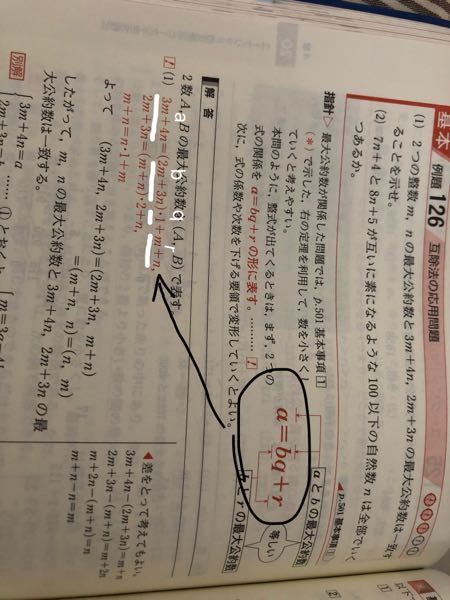 基本 例題 126 互除法の応用問題
(1) 2つの整数 m, n の最大公約数と 3m+4n, 2m+3n の最大公約数は一致す
ることを示せ。
(2) 7n+4 と 3n+5 が互いに素になるような 100 以下の自然数 n は全部でいく
つあるか。
p.501 基本事項 1
指針 最大公約数が関係した問題では, p.501 基本事項 1
(*)で示した, 右の定理を利用して, 数を小さくし
ていくと考えやすい。
本問のように, 整式が出てくるときは, まず, 2つの
式の関係を a=bq+r の形に表す。
次に, 式の係数や次数を下げる要領で変形していくとよい。
a と b の最大公約数
a=bq+r
等しい
と r の最大公約数
解答
2数 A, B の最大公約数を (A, B) で表す。
a b q r
(1) 3m+4n=(2m+3n)・1+m+n,
2m+3n=(m+n)・2+n,
m+n=n・1+m
よって (3m+4n, 2m+3n)=(2m+3n, m+n)
=(m+n, n)=(n, m)
したがって, m, n の最大公約数と 3m+4n, 2m+3n の最
大公約数は一致する。
◀差をとって考えてもよい。
3m+4n-(2m+3n)=m+n
2m+3n-(m+n)=m+2n
m+2n-(m+n)=n
m+n-n=m
別解
3m+4n=a
…… ① とおくと